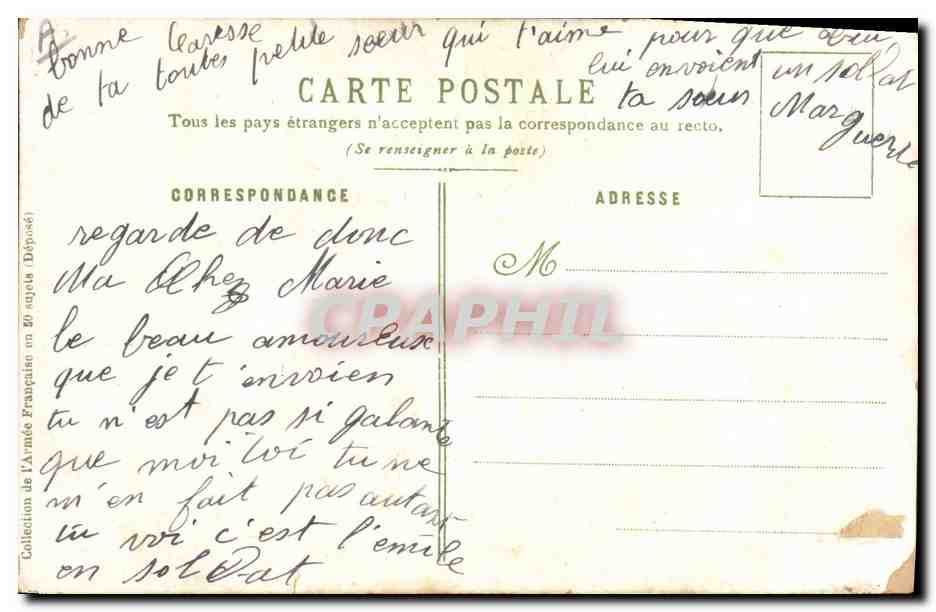 bonne Caresse
de ta toutes petite soeur qui t'aime pour que
lui envoient un soldat
ta soeur Marguerite
CARTE POSTALE
Tous les pays étrangers n'acceptent pas la correspondance au recto.
(Se renseigner à la poste)
CORRESPONDANCE
ADRESSE
M
regarde de donc
Ma Chez Marie
le beau amoureux
que je t'envoien
tu n'est pas si galante
que moi toi tu ne
m'en fait pas autant
tu voi c'est l'emile
en soldat
Collection de l'Armée Française en 50 sujets (Déposé)
CPAPHIL